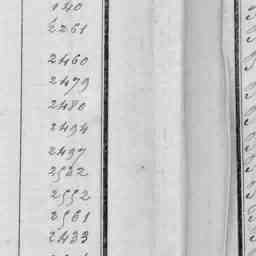 2261
2460
2479
2480
2494
2497
2522
2552
2561
2433